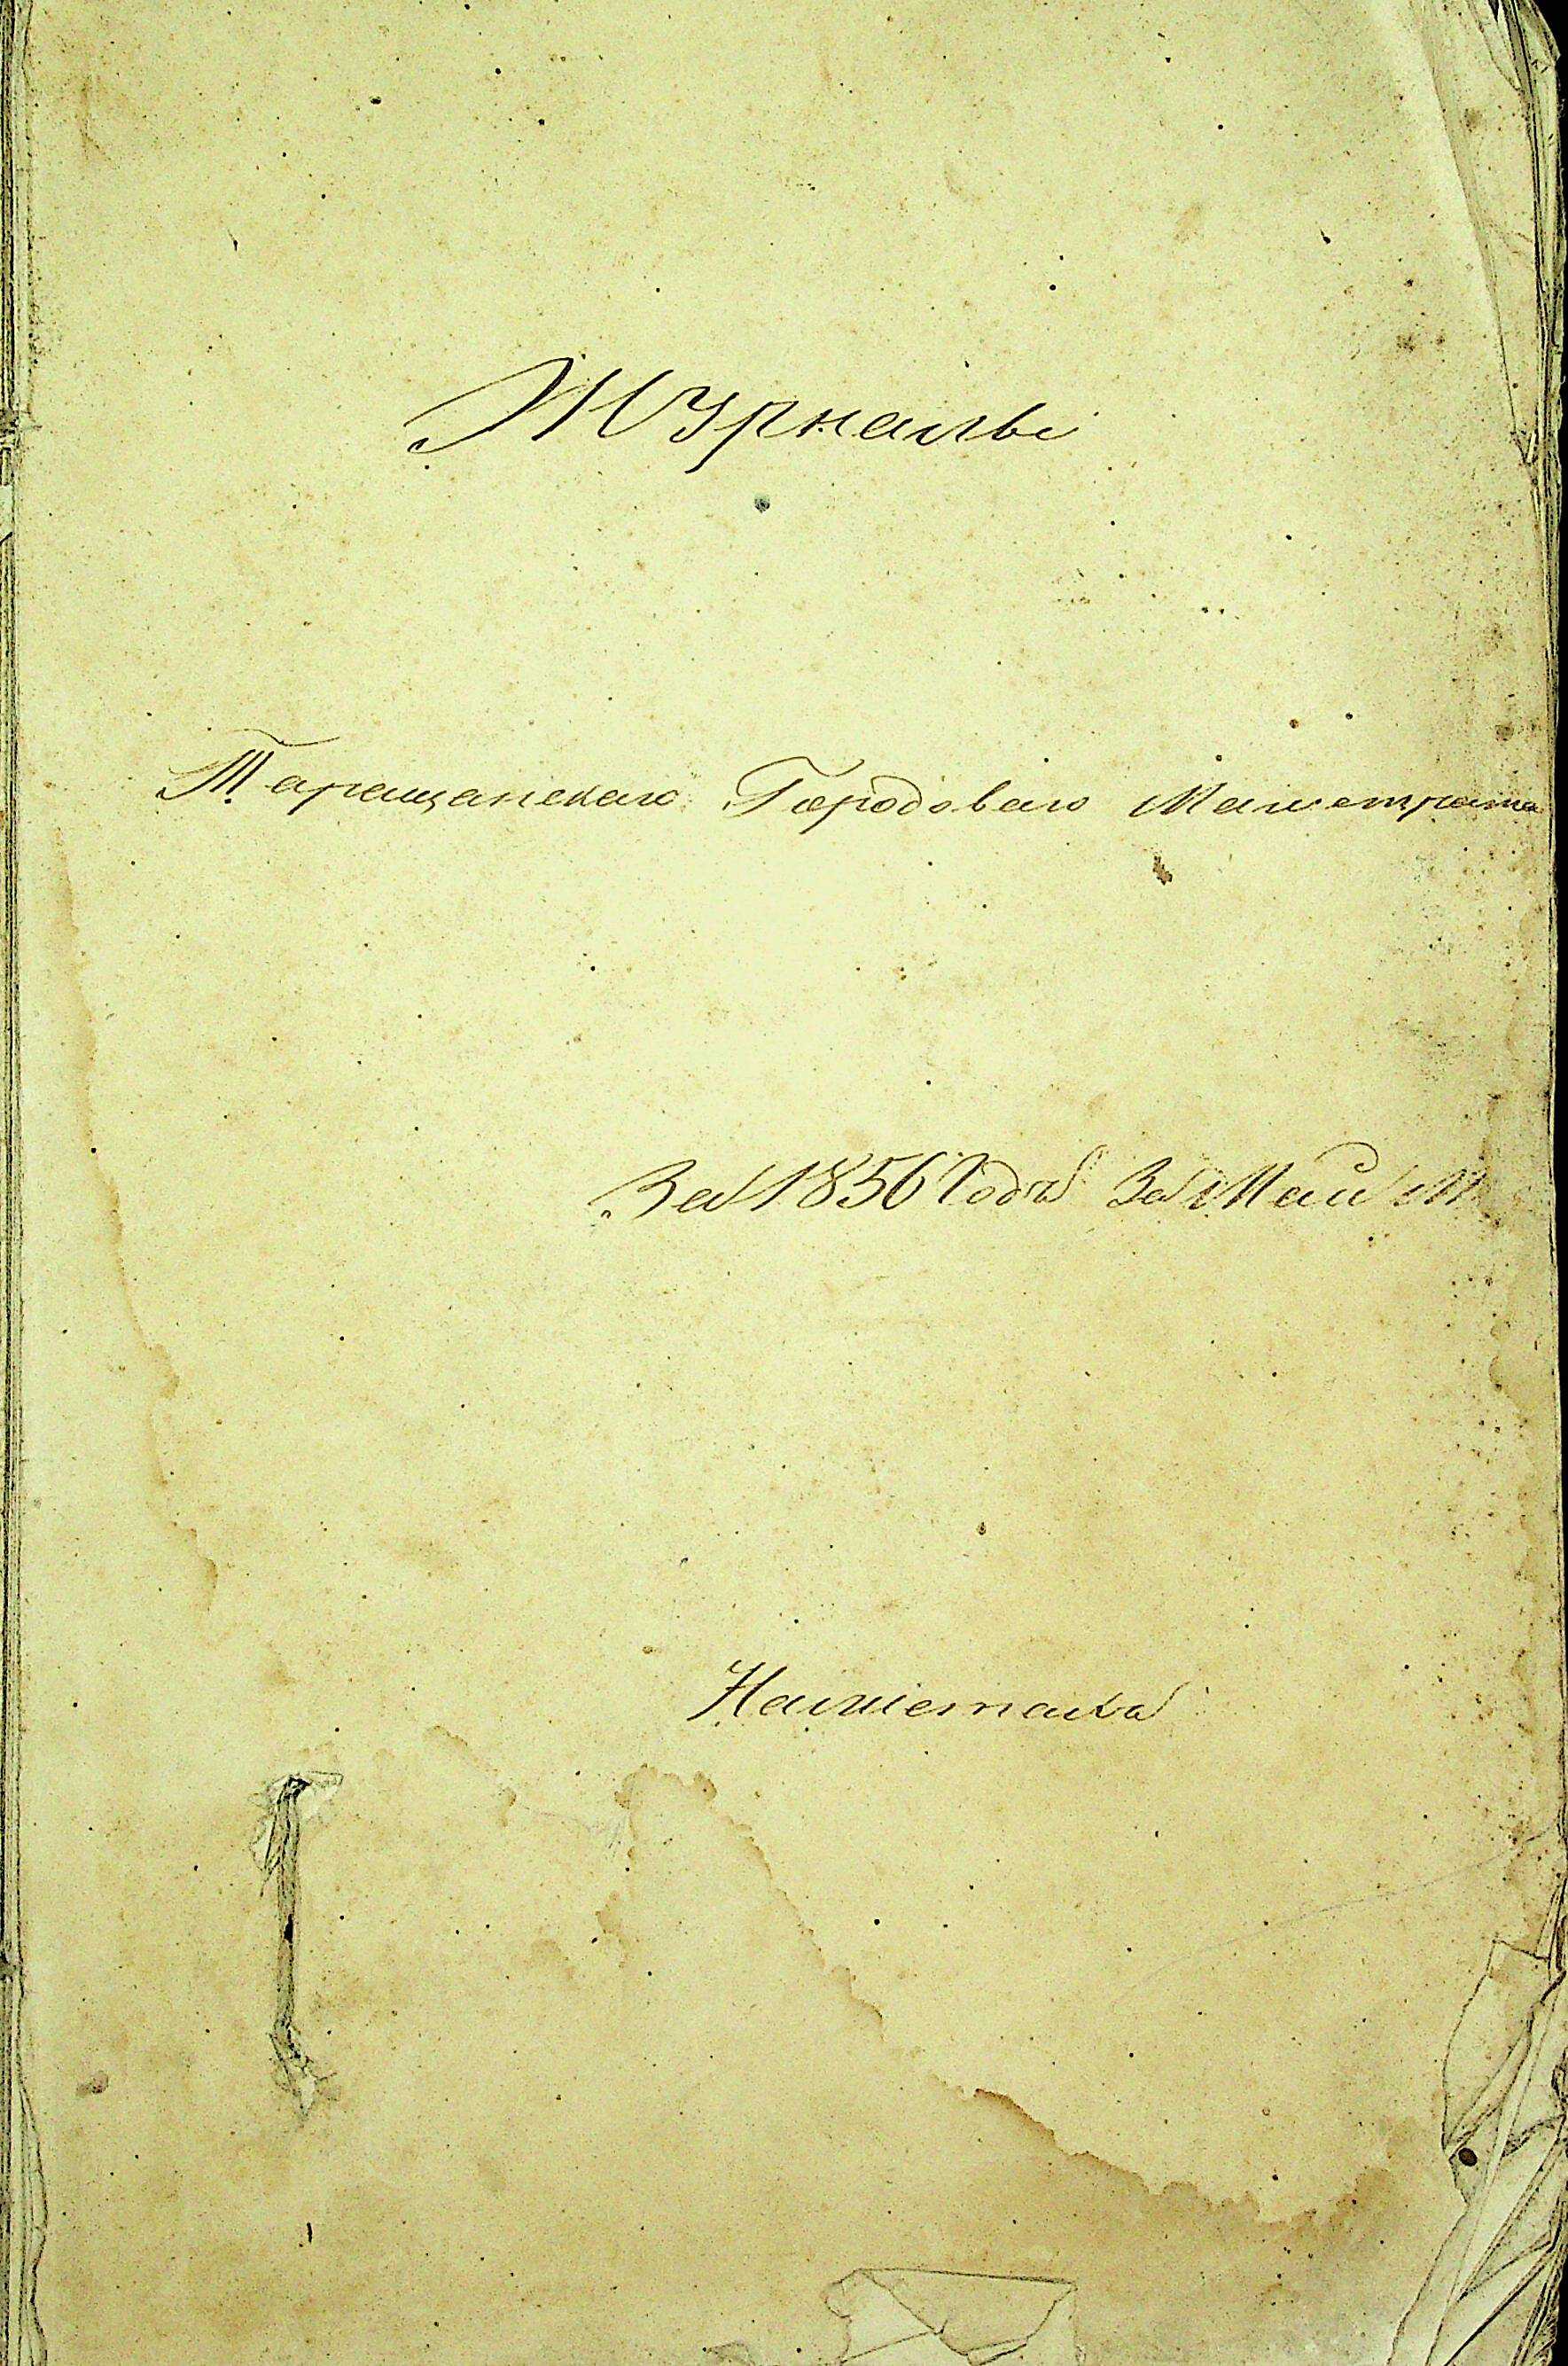 Журналы
Таращанскаго Городоваго Магистрата
За 1856 Годъ За Май М
На листахъ